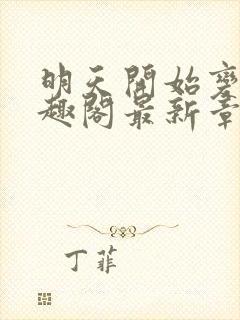 明天開始變
趣閣最新章
丁菲